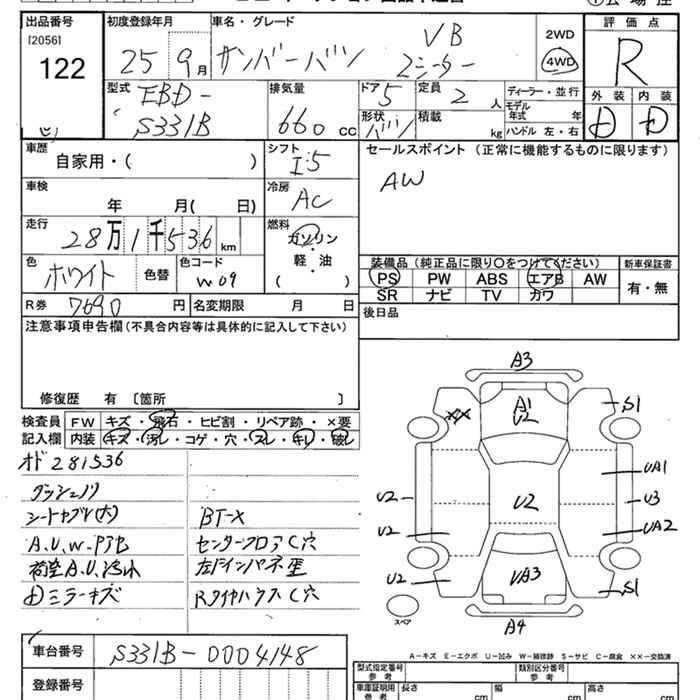 出品番号
[2056]
122
初度登録年月
25 9月
車名・グレード
サンバーバン
VB
2シーター
2WD
4WD
評価点
R
型式
EBD-
S331B
排気量
660 cc
ドア 5
形状 バン
定員
2 人
積載
kg
ディーラー・並行
モデル年式 年
ハンドル 左・右
外装
内装
D
D
車歴
自家用・( )
シフト
I5
セールスポイント (正常に機能するものに限ります)
AW
車検
年 月( 日)
冷房
AC
走行
28万1千536km
燃料
ガソリン
・
軽・油
( )
色
ホワイト
色替
色コード
W09
装備品 (純正品に限り○をつけてください)
PS PW ABS エアB AW
SR ナビ TV カワ
新車保証書
有・無
R券 7690 円
名変期限 月 日
後日品
注意事項申告欄 (不具合内容等は具体的に記入して下さい)
修復歴 有 〔箇所 〕
検査員
記入欄
FW キズ・飛石・ヒビ割・リペア跡・×要
内装 キズ・汚レ・コゲ・穴・スレ・キレ・破レ
オド 281536
ダッシュノリ
シートヤブレ(大)
BT-X
A.U.W.P7B
センターフロアC穴
荷室A.U.
左リインパネ歪
Dミラーキズ
RタイヤハウスC穴
A3
A1
U2
XX
S1
UA1
U2
U2
U3
U2
UA2
U2
UA3
S1
A4
スペア
A-キズ E-エクボ U-凹み W-補修跡 S-サビ C-腐食 ××-交換済
車台番号
S331B-0004148
登録番号
型式指定番号
参考
類別区分番号
参考
車庫証明用
参考
長さ cm
幅 cm
高さ cm